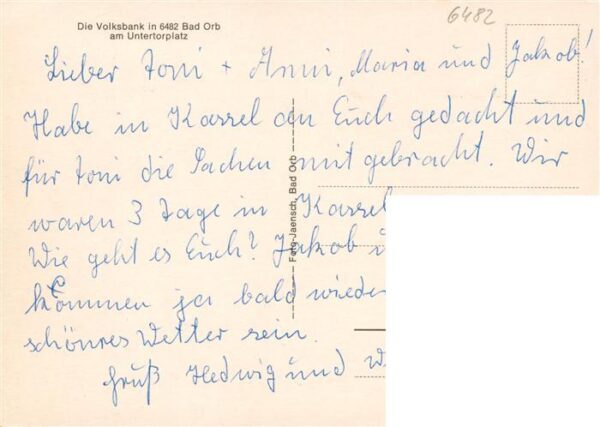 Die Volksbank in 6482 Bad Orb
am Untertorplatz
6482
Lieber Toni + Anni, Maria und Jakob!
Habe in Kassel an Euch gedacht und
für Toni die Sachen mitgebracht. Wir
waren 3 Tage in Kassel
Wie geht es Euch? Jakob
kommen ja bald wieder
schönres Wetter sein.
Gruß Hedwig und W
Foto-Jaensch, Bad Orb